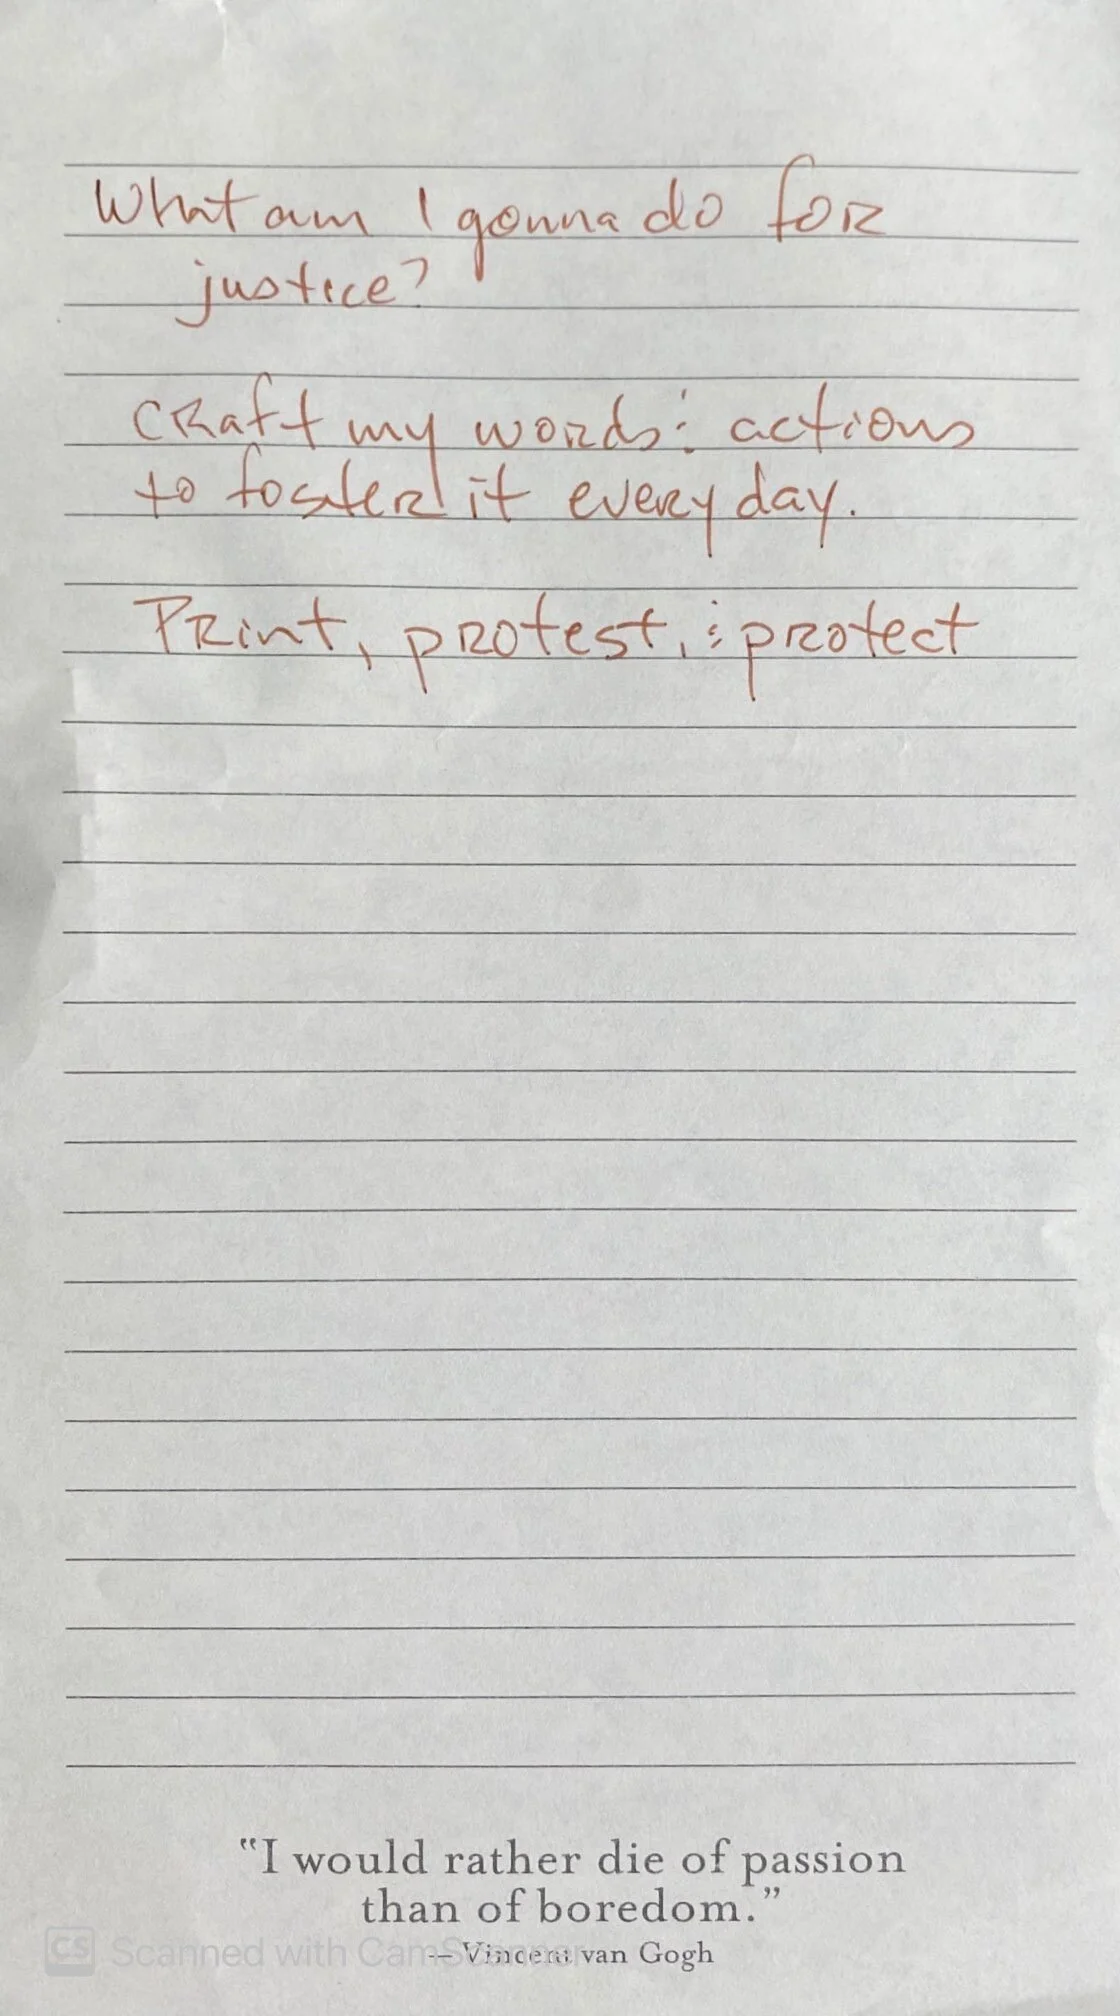 What am I gonna do for
justice?
Craft my words & actions
to foster it every day.
Print, protest, & protect
"I would rather die of passion
than of boredom."
— Vincent van Gogh
CS Scanned with CamScanner